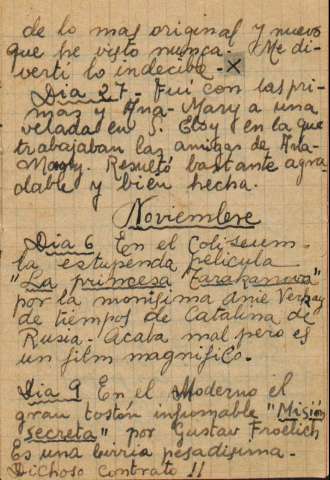 de lo mas original y nuevo
que he visto nunca. Me di-
verti lo indecible - X
Dia 27 - Fui con las pri-
mas y Ana-Mary a una
velada en S. Eloy en la que
trabajaban las amigas de Ana-
Mary. Resultó bastante agra-
dable y bien hecha.
Noviembre
Dia 6 En el Coliseum
la estupenda pelicula
"La princesa Tarakanova"
por la monisima Anie Vernay
de tiempos de Catalina de
Rusia. Acaba mal pero es
un film magnifico.
Dia 9 En el Moderno el
gran tostón infumable "Misión
secreta" por Gustav Froelich
Es una birria pesadisima -
Dichoso contrato!!